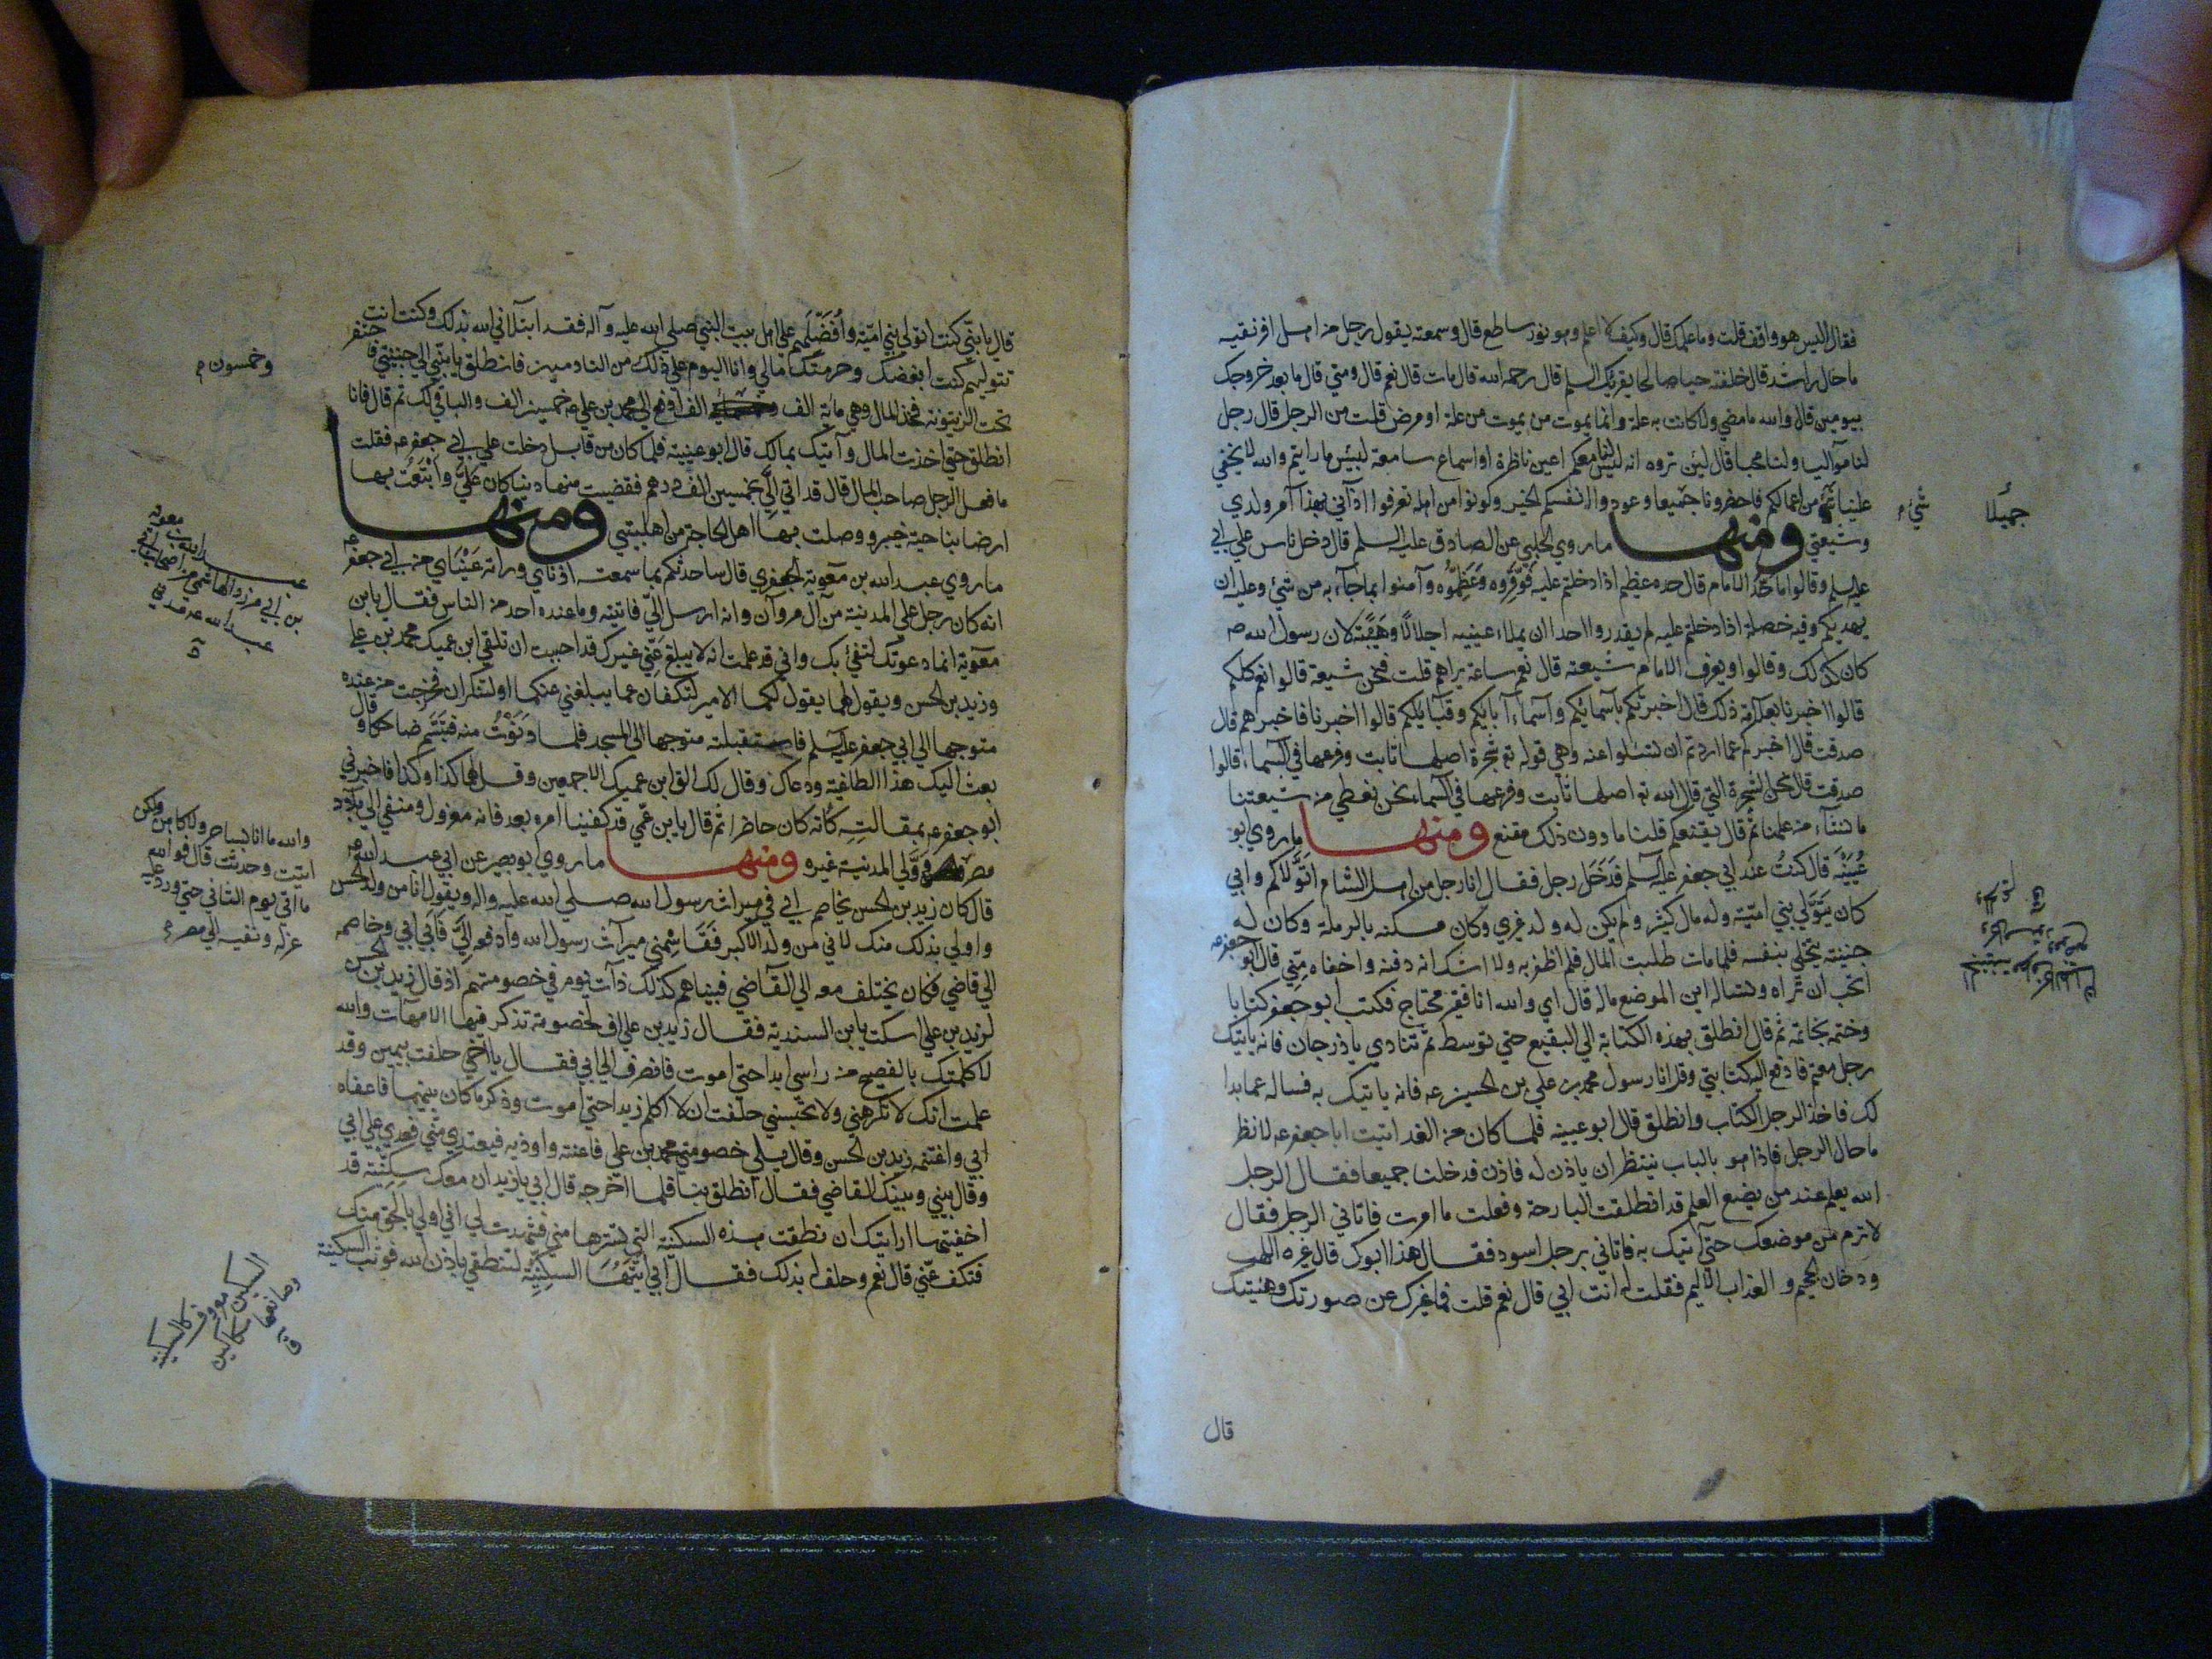 فقال اليس هو واقف قلت وما علمك قال وكيف لا اعلم وهو نور ساطع قال وسمعته يقول رجل من اهل افريقيه
ما حال راشد قال خلفته حيا صالحا يقرئك السلم قال رحمه الله قال مات قال نعم قال ومتي قال ما بعد خروجك
بيومين قال والله ما مضي ولا كانت به علة وانما يموت من يموت من علة او مرض قلت من الرجل قال رجل
لنا موآلب ولنا محبا قال لئن تروه انه ليس لنا معكم اعين ناظرة او اسماع سامعة لبئس ما رايتم والله لا يخفي
علينا شئ من اعمالكم فاحضرونا جميعا وعودوا انفسكم الخير وكونوا من اهله تعرفوا اذ آني بهذا آمر ولدي
وشيعتي ومنها ما روي الحلبي عن الصادق عليه السلم قال دخل ناس علي ابي
عليه السلم وقالوا ما حد الامام قال حده عظيم اذا دخلتم عليه فوقروه وعظموه وآمنوا بما جآء به من شئ وعليه ان
يهديكم وفيه خصلة اذا دخلتم عليه لم يقدروا احد ان يملاء عينيه اجلالا وهيبة لان رسول الله ص
كان كذلك وقالوا ويعرف الامام شيعته قال نعم ساعة يراهم قلت فنحن شيعة قالوا نعم كلكم
قالوا اخبرنا بعلامة ذلك قال اخبرتكم باسمائكم وآسماء آبائكم وقبآيلكم قالوا اخبرنا فاخبرهم قال
صدقت قال اخبركم عما اردتم ان تسئلوا عنه وهي قوله تع شجرة اصلها ثابت وفرعها في السماء قالوا
صدقت قال نحن الشجرة التي قال الله تع اصلها ثابت وفرعها في السماء نحن نعطي من شيعتنا
ما نشآء من علمنا ثم قال يقنعكم قلنا ما دون ذلك مقنع ومنها ما روي ابو
عيينه قال كنت عند ابي جعفر عليه السلم فدخل رجل فقال انا رجل من اهل الشام اتولاكم وابي
كان يتولي بني امية وله مال كثير ولم يكن له ولد غيري وكان مسكنه بالرملة وكان له
جنينة يتخلي بنفسه فلما مات طلبت المال فلم اظفر به ولا اشك انه دفنه واخفاه مني قال ابو جعفر عه
اتحب ان تراه وتساله اين الموضع ماله قال اي والله انا فقير محتاج فكتب ابو جعفر كتابا
وختمه بخاتمه ثم قال انطلق بهذه الكتابة الي البقيع حتي توسط ثم تنادي يا ذرجان فانه ياتيك
رجل معتم فادفع اليه كتابتي وقل انا رسول محمد بن علي بن الحسين عه فانه ياتيك به فساله عما بدا
لك فاخذ الرجل الكتاب وانطلق قال ابو عيينه فلما كان من الغد اتيت ابا جعفر عه لانظر
ما حال الرجل فاذا هو بالباب ينتظر ان ياذن له فاذن فدخلنا جميعا فقال الرجل
الله يعلم عند من يضع العلم قد انطلقت البارحة وفعلت ما امرت فاتاني الرجل فقال
لا ترم من موضعك حتي آتيك به فاتاني برجل اسود فقال هذا ابوك قال غيره اللهب
ودخان الجحيم والعذاب الاليم فقلت له انت ابي قال نعم قلت فما غيرك عن صورتك وهيئتك
جميلا شئ
قال
قال يا بني كنت اتولي بني امية وافضلهم علي اهل بيت النبي صلي الله عليه وآله فقد ابتلاني الله بذلك وكنت انت
تتوليهم كنت ابغضك وحرمتك مالي وانا اليوم علي ذلك من النادمين فانطلق يا بني الي جنينتي فاحتفر
تحت الزيتونة فخذ المال وهي مائة الف الف اوفع الي محمد بن علي عه خمسين الف والباقي لك ثم قال فانا
انطلق حتي اخذت المال وآتيك بمالك قال ابو عيينه فلما كان من قابل دخلت علي ابي جعفر عه فقلت
ما فعل الرجل صاحب المال قال قد اتي الي بخمسين الف درهم فقضيت منها دينا كان علي وابتعت بها
ارضا بناحية خيبر ووصلت بها اهل الحاجة من اهل بيتي ومنها
ما روي عبد الله بن معوية الجعفري قال ساحدثكم بما سمعته اذناي وراته عيناي من ابي جعفر عه
انه كان رجل علي المدينة من آل مروآن وانه ارسل الي فاتيته وما عنده احد من الناس فقال يا بن
معوية انما دعوتك لثقتي بك واني قد علمت انه لا يبلغ عني غيرك قد احببت ان تلقي ابن عميك محمد بن علي
وزيد بن الحسن ويقول لهما يقول لكما الامير لتكفان عما يبلغني عنكما او لتنكران فخرجت من عنده
متوجها الي ابي جعفر عليه السلم فاستقبلته متوجها الي المسجد فلما دنوت منه فتبسم ضاحكا وقال
بعث اليك هذا الطاغية ودعاك وقال لك الق ابن عميك الاجمعين وقل لهما كذا وكذا فاخبرني
ابو جعفر عه بمقالته كانه كان حاظرا ثم قال يا ابن عمي قد كفينا امره بعد فانه معزول ومنفي الي بلاد
مصر فولي المدينة غيره ومنها ما روي بو بصير عن ابي عبد الله عه
قال كان زيد بن الحسن يخاصم ابي في ميراث رسول الله صلي الله عليه واله ويقول انا من ولد الحسن
واولي بذلك منك لاني من ولد الاكبر فقاسمني ميرآث رسول الله وآدفعه الي فابي ابي وخاصمه
الي قاضي فكان يختلف معه الي القاضي فبينا هم كذلك ذآت يوم في خصومتهم اذ قال زيد بن الحسن
لزيد بن علي اسكت يا بن السندية فقال زيد بن علي اف لخصومة تذكر فيها الامهات والله
لا كلمتك بالفصيح من راسي ابدا حتي اموت فانصرف الي ابي فقال يا اخي حلفت بيمين وقد
علمت انك لا تكرهني ولا تخيبني حلفت ان لا اكلم زيدا حتي اموت وذكر ما كان بينهما فاعفاه
ابي واغتنمه زيد بن الحسن وقال يلي خصومتي محمد بن علي فاعنته واوذيه فيعتدي مني فعدي علي ابي
وقال بيني وبينك القاضي فقال انطلق بنا فلما اخرجه قال ابي يا زيد ان معك سكينة قد
اخفيتها ارايتك ان نطقت هذه السكينة التي تسترها مني فشهدت لي اني اولي بالحق منك
فتكف عني قال نعم وحلف له بذلك فقال ابي ايتها السكينة انطقي باذن الله فوثب السكينة
وخمسون
والله ما انا بساحر ولا كاهن ولكن
اتيت وحدثت قال فو الله
ما اتي يوم الثاني حتي ورد عليه
عزله ونفيه الي مصر